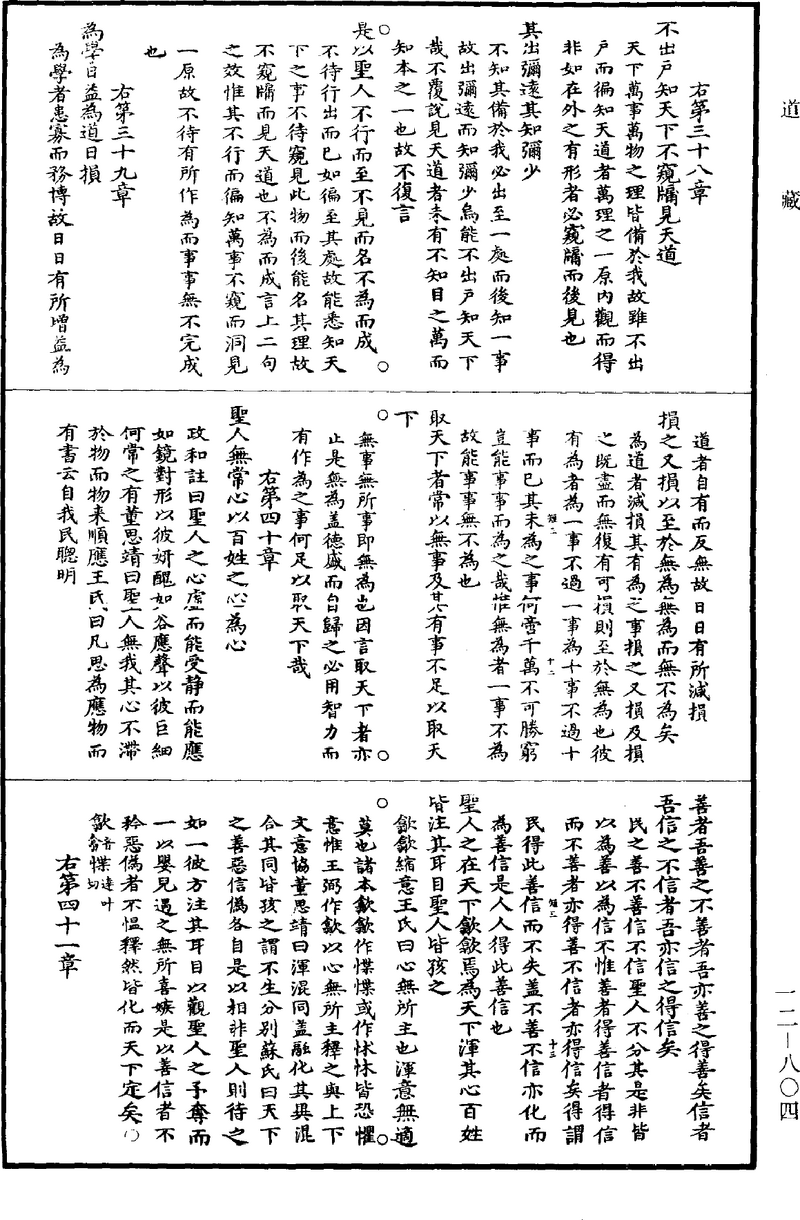 道藏
右第三十八章
不出戶知天下不窺牖見天道
天下萬事萬物之理皆備於我故雖不出
戶而徧知天道者萬理之一原內觀而得
非如在外之有形者必窺牖而後見也
其出彌遠其知彌少
不知其備於我必出至一處而後知一事
故出彌遠而知彌少烏能不出戶知天下
哉不覆說見天道者未有不知目之萬而
知本之一也故不復言
是以聖人不行而至不見而名不為而成
不待行出而已如徧至其處故能悉知天
下之事不待窺見此物而後能名其理故
不窺牖而見天道也不為而成言上二句
之效惟其不行而徧知萬事不窺而洞見
一原故不待有所作為而事事無不完成
也
右第三十九章
為學日益為道日損
為學者患寡而務博故日日有所增益為
道者自有而反無故日日有所減損
損之又損以至於無為無為而無不為矣
為道者減損其有為之事損之又損及損
之既盡而無復有可損則至於無為也彼
有為者為一事不過一事為十事不過十
事而已其未為之事何啻千萬不可勝窮
豈能事事而為之哉惟無為者一事不為
故能事事無不為也
取天下者常以無事及其有事不足以取天
下
無事無所事即無為也因言取天下者亦
止是無為蓋德盛而自歸之必用智力而
有作為之事何足以取天下哉
右第四十章
聖人無常心以百姓之心為心
政和註曰聖人之心虛而能受靜而能應
如鏡對形以彼妍醜如谷應聲以彼巨細
何常之有董思靖曰聖人無我其心不滯
於物而物來順應王氏曰凡思為應物而
有書云自我民聰明
善者吾善之不善者吾亦善之得善矣信者
吾信之不信者吾亦信之得信矣
民之善不善信不信聖人不分其是非皆
以為善以為信不惟善者得善信者得信
而不善者亦得善不信者亦得信矣得謂
民得此善信而不失蓋不善不信亦化而
為善信是人人得此善信也
聖人之在天下歙歙焉為天下渾其心百姓
皆注其耳目聖人皆孩之
歙歙縮意王氏曰心無所主也渾意無適
莫也諸本歙歙作惵惵或作怵怵皆恐懼
意惟王弼作歙以心無所主釋之與上下
文意協董思靖曰渾混同蓋融化其異混
合其同皆孩之謂不生分別蘇氏曰天下
之善惡信偽各自是以相非聖人則待之
如一彼方注其耳目以觀聖人之予奪而
一以嬰兒遇之無所喜嫉是以善信者不
矜惡偽者不慍釋然皆化而天下定矣○
歙音翕惵達叶切
右第四十一章
一二—八〇四